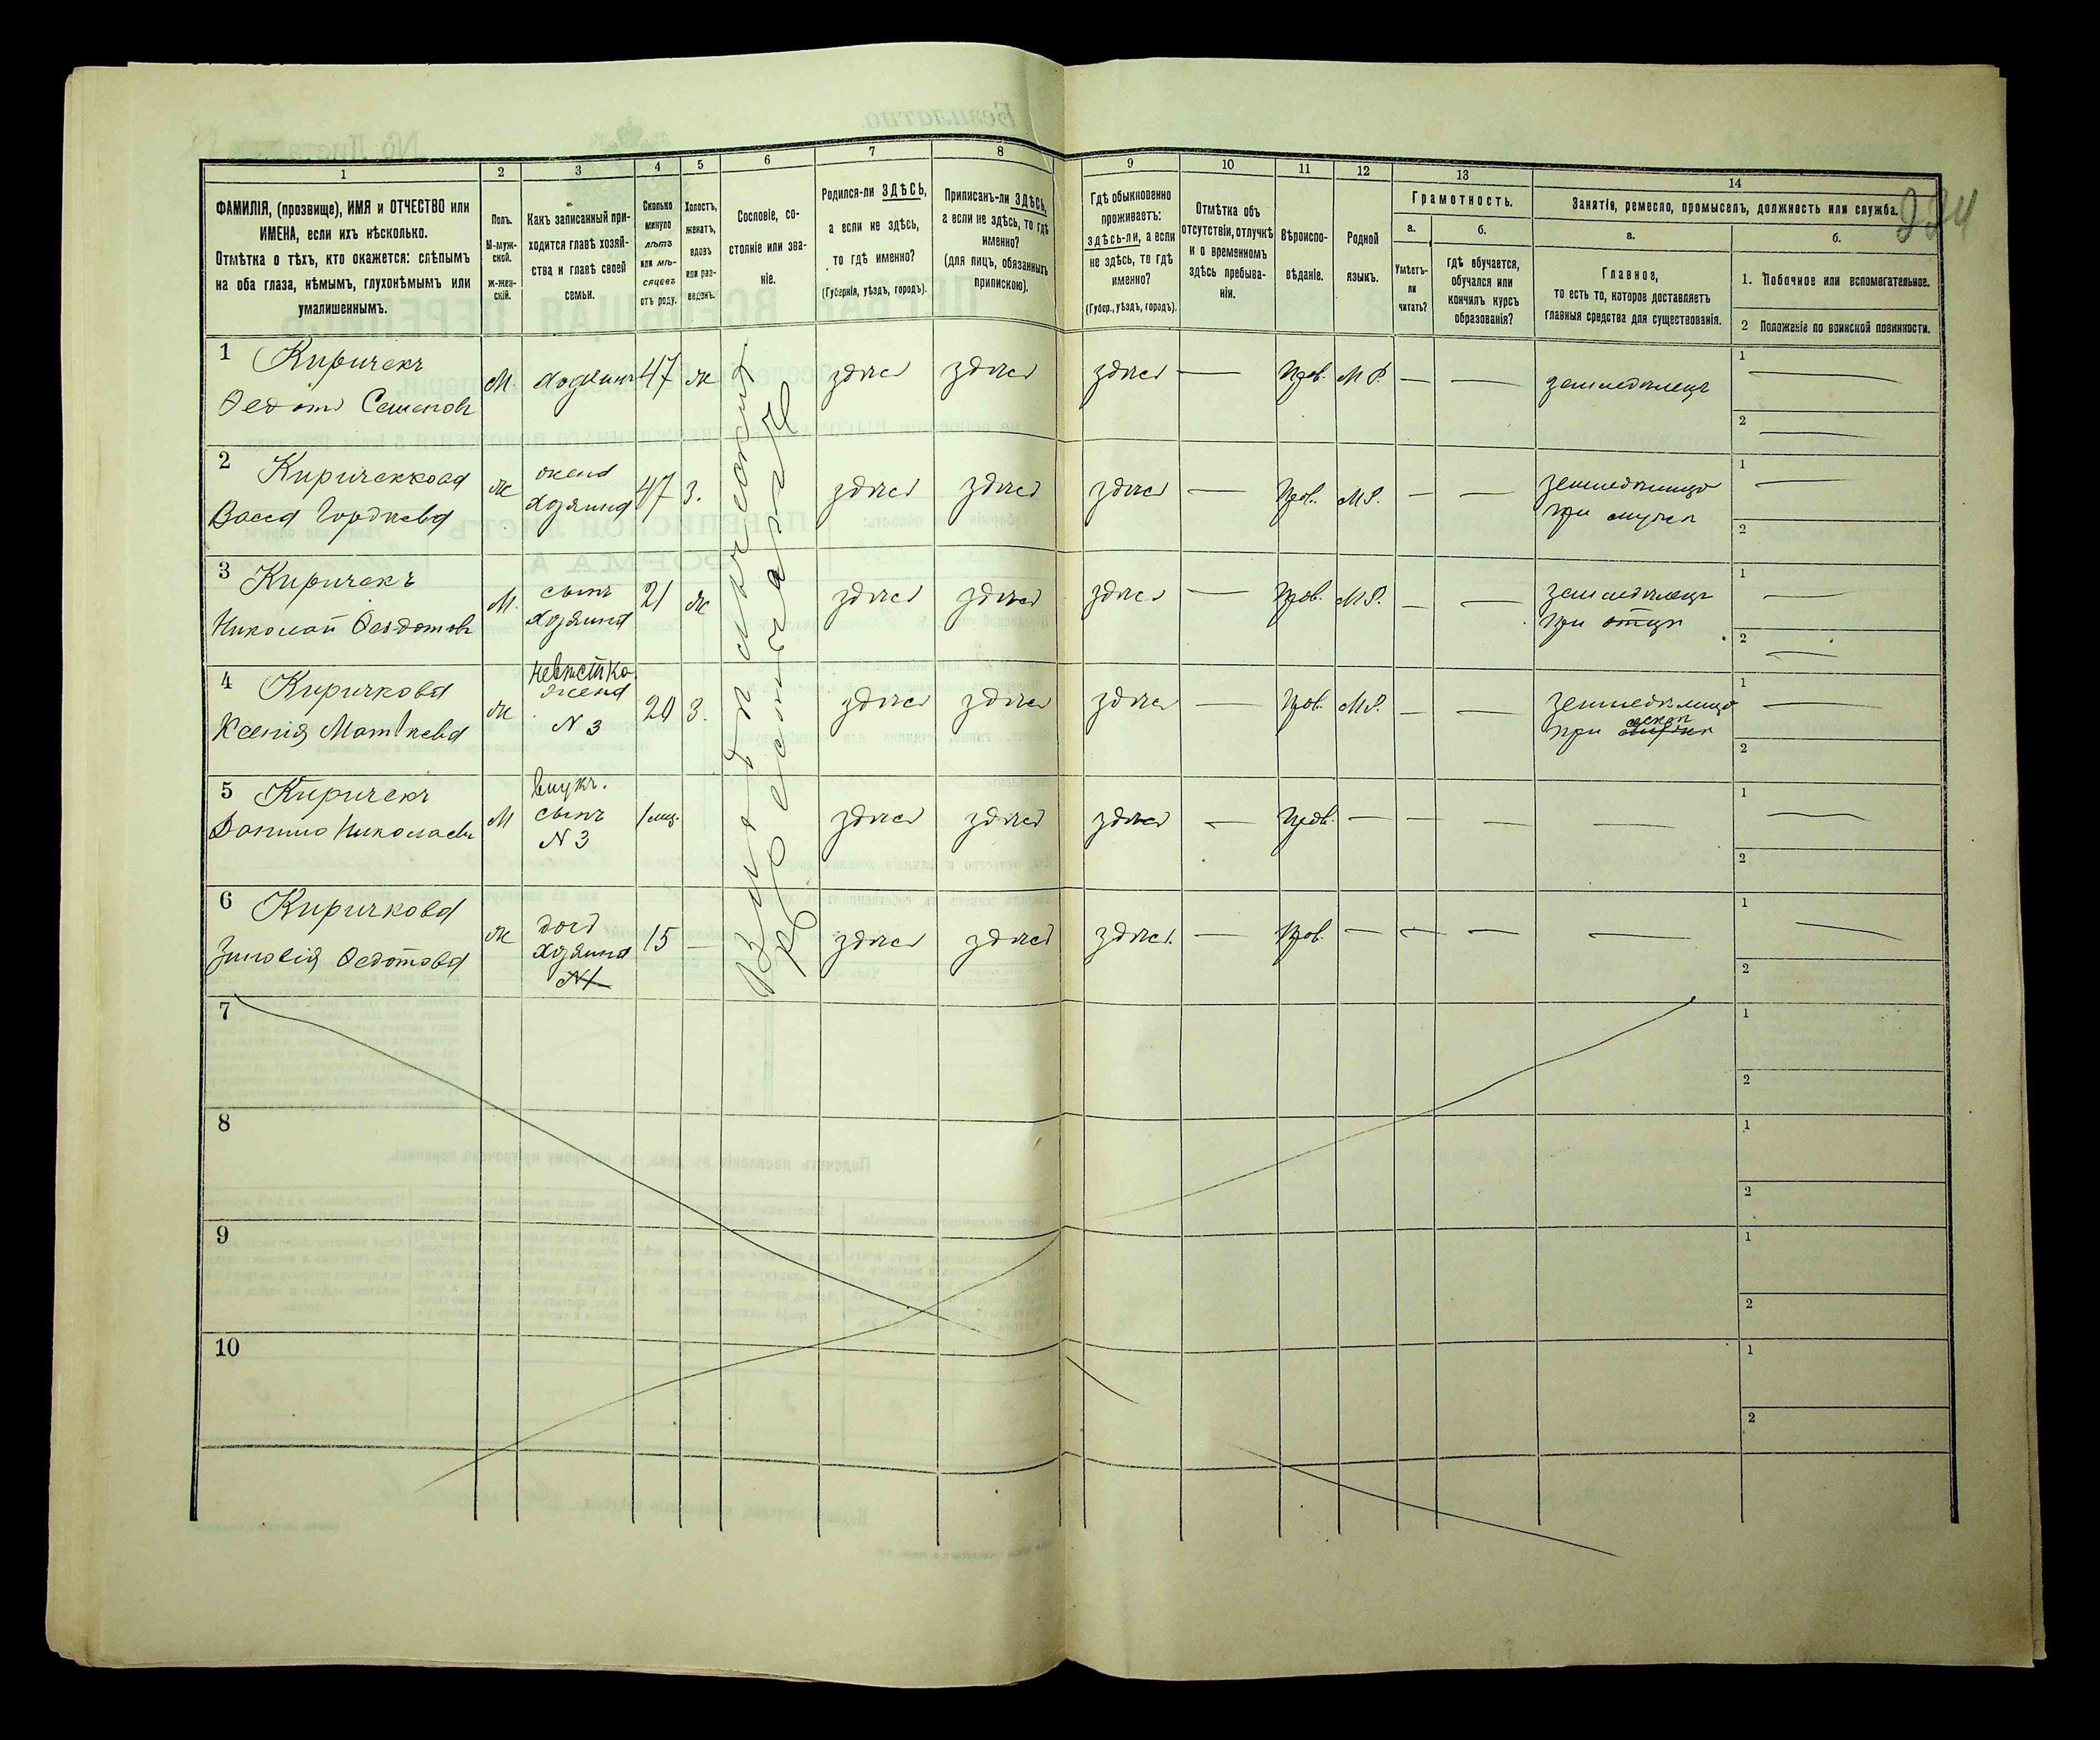 224
1
2
3
4
5
6
7
8
9
10
11
12
13
14
ФАМИЛІЯ, (прозвище), ИМЯ и ОТЧЕСТВО или
ИМЕНА, если ихъ нѣсколько.
Отмѣтка о тѣхъ, кто окажется: слѣпымъ
на оба глаза, нѣмымъ, глухонѣмымъ или
умалишеннымъ.
Полъ.
М-муж-
ской.
Ж-жен-
скій.
Какъ записанный при-
ходится главѣ хозяй-
ства и главѣ своей
семьи.
Сколько
минуло
лѣтъ
или мѣ-
сяцевъ
отъ роду.
Холостъ,
женатъ,
вдовъ
или раз-
веденъ.
Сословіе, со-
стояніе или зва-
ніе.
Родился-ли ЗДѢСЬ,
а если не здѣсь,
то гдѣ именно?
(Губернія, уѣздъ, городъ).
Приписанъ-ли ЗДѢСЬ,
а если не здѣсь, то гдѣ
именно?
(для лицъ, обязанныхъ
припискою).
Гдѣ обыкновенно
проживаетъ:
здѣсь-ли, а если
не здѣсь, то гдѣ
именно?
(Губер., уѣздъ, городъ).
Отмѣтка объ
отсутствіи, отлучкѣ
и о временномъ
здѣсь пребыва-
ніи.
Вѣроиспо-
вѣданіе.
Родной
языкъ.
Грамотность.
а.
Умѣетъ-
ли
читать?
б.
гдѣ обучается,
обучался или
кончилъ курсъ
образованія?
Занятіе, ремесло, промыселъ, должность или служба.
а.
Главное,
то есть то, которое доставляетъ
главныя средства для существованія.
б.
1. Побочное или вспомогательное.
2 Положеніе по воинской повинности.
1 Киричекъ
Федотъ Семеновъ
М хозяинъ 47 ж здѣсь здѣсь здѣсь — Прав. М.Р. — — земледѣлецъ
1 —
2 —
2 Киричекова
Васса Гордѣева
ж жена
хозяина
47 з. здѣсь здѣсь здѣсь — Прав. М.Р. — — земледѣлица
при мужѣ
1 —
2
3 Киричекъ
Николай Федотовъ
М. сынъ
хозяина
21 ж здѣсь здѣсь здѣсь — Прав. М.Р. — — земледѣлецъ
при отцѣ
1 —
2 —
4 Киричкова
Ксенія Матвѣева
ж невѣстка
жена
N 3
20 з. здѣсь здѣсь здѣсь — Прав. М.Р. — — земледѣлица
при свекрѣ
1 —
2
5 Киричекъ
Данило Николаевъ
М Внукъ.
сынъ
N 3
1 мѣс. здѣсь здѣсь здѣсь — Прав. — — — —
1 —
2
6 Киричкова
Зиновія Федотова
ж дочь
хозяина
N1
15 — здѣсь здѣсь здѣсь. — Прав. — — — —
1 —
2
7
1
2
8
1
2
9
1
2
10
1
2